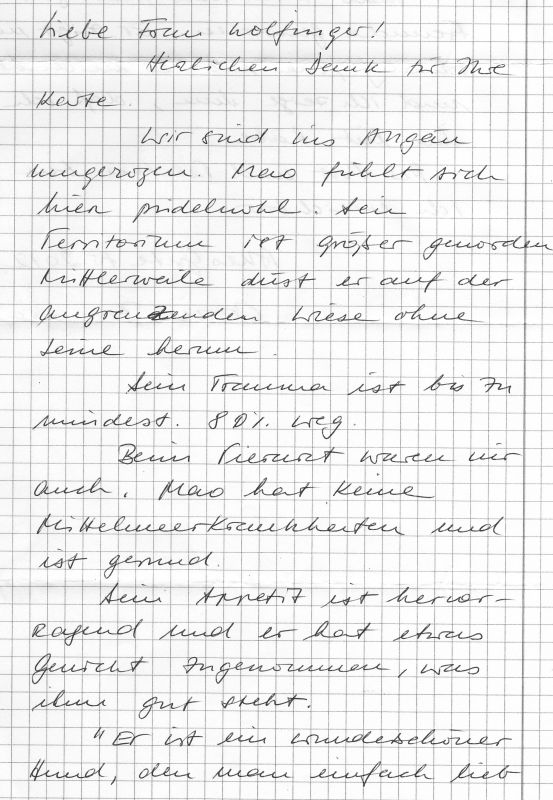 Liebe Frau Wolfinger!
Herzlichen Dank für Ihre
Karte.
Wir sind ins Allgäu
umgezogen. Mao fühlt sich
hier pudelwohl. Sein
Territorium ist größer geworden
Mittlerweile düst er auf der
angrenzenden Wiese ohne
Leine herum.
Sein Trauma ist bis zu
mindest. 80%. weg.
Beim Tierarzt waren wir
auch. Mao hat keine
Mittelmeerkrankheiten und
ist gesund.
Sein Appetit ist hervor-
ragend und er hat etwas
Gewicht zugenommen, was
ihm gut steht.
"Er ist ein wunderschöner
Hund, den man einfach lieb